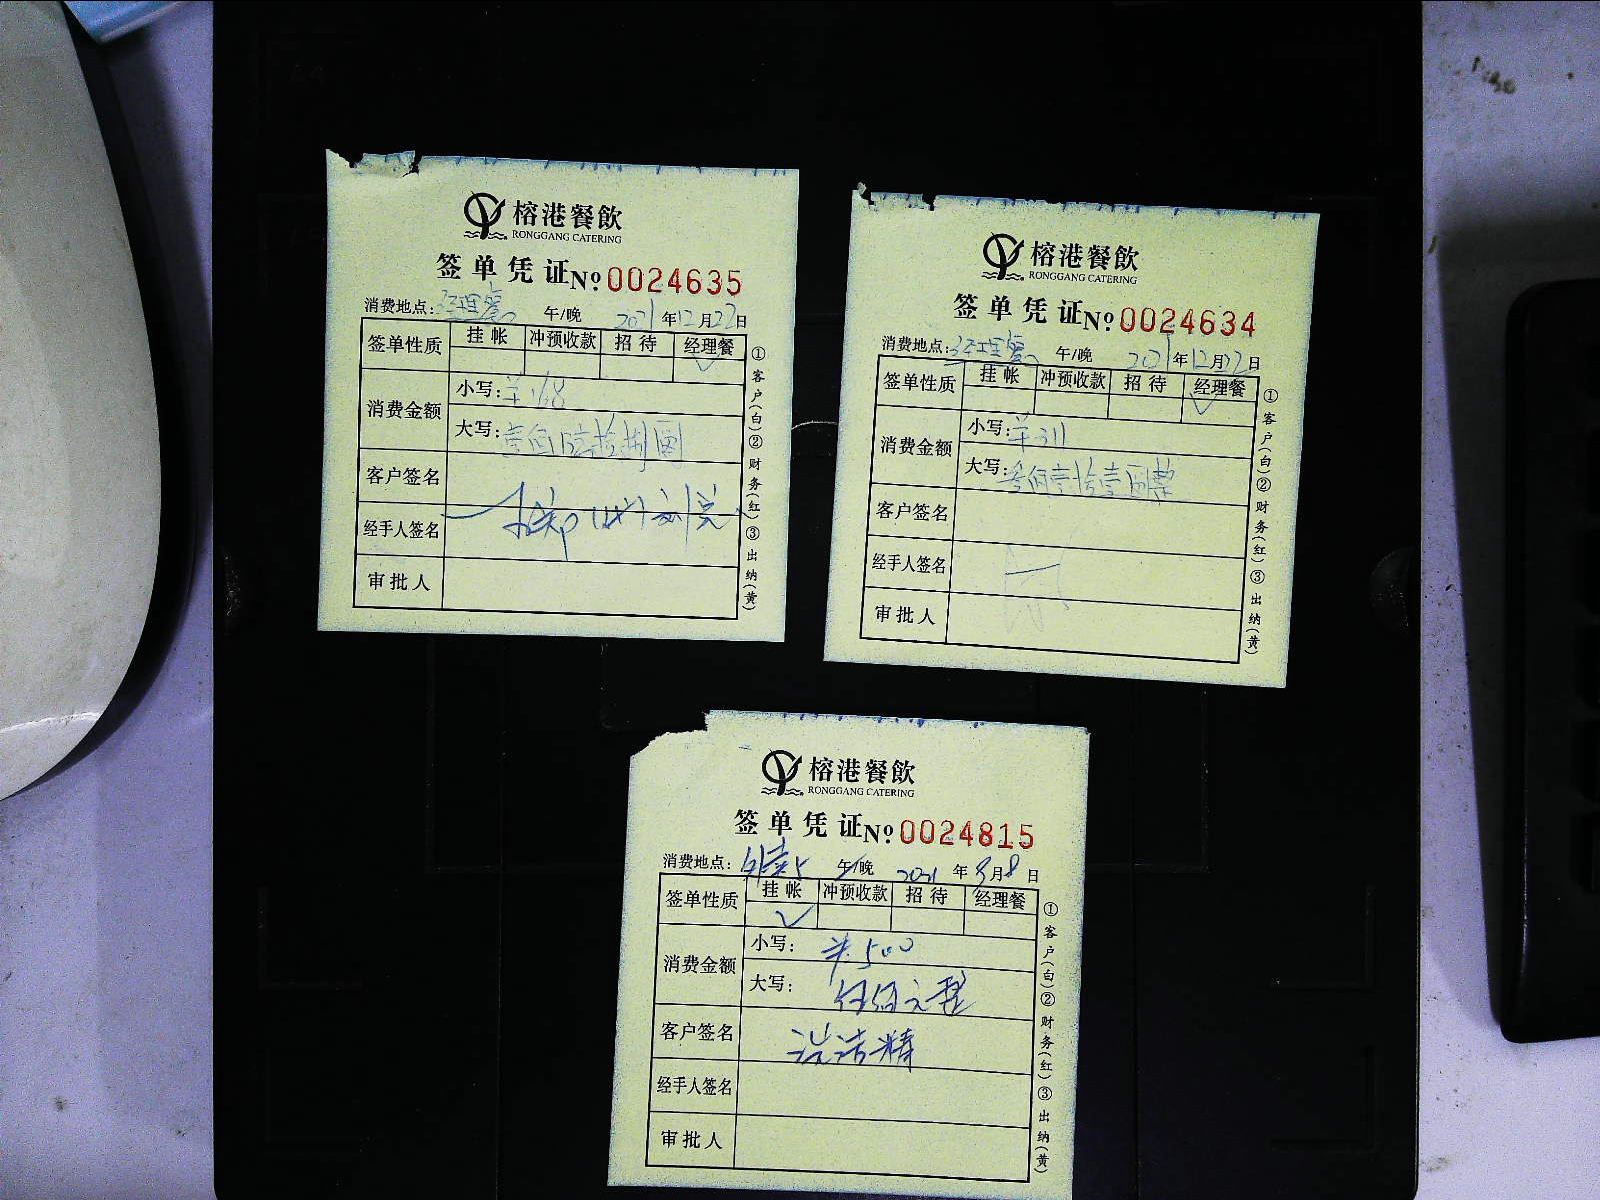 榕港餐飲
RONGGANG CATERING
签单凭证№0024635
消费地点: 经理餐 午/晚 2021年12月22日
签单性质 挂帐 冲预收款 招待 经理餐
✓
消费金额 小写: ¥168
大写: 壹佰陆拾捌圆
客户签名
经手人签名
审批人
①客户(白)②财务(红)③出纳(黄)
榕港餐飲
RONGGANG CATERING
签单凭证№0024634
消费地点: 经理餐 午/晚 2021年12月22日
签单性质 挂帐 冲预收款 招待 经理餐
✓
消费金额 小写: ¥311
大写: 叁佰壹拾壹圆整
客户签名
经手人签名
审批人
①客户(白)②财务(红)③出纳(黄)
榕港餐飲
RONGGANG CATERING
签单凭证№0024815
消费地点: 午/晚 2021年3月8日
签单性质 挂帐 冲预收款 招待 经理餐
✓
消费金额 小写: ¥500
大写: 伍佰元整
客户签名 洪洁精
经手人签名
审批人
①客户(白)②财务(红)③出纳(黄)